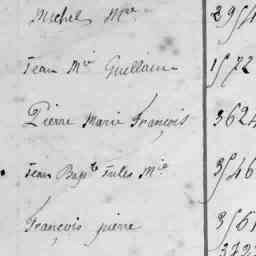 Michel Mie
Jean Mie Guillaume 1572
Pierre Marie François 3624
Jean Bapte Jules Mie 3546
François pierre 3561